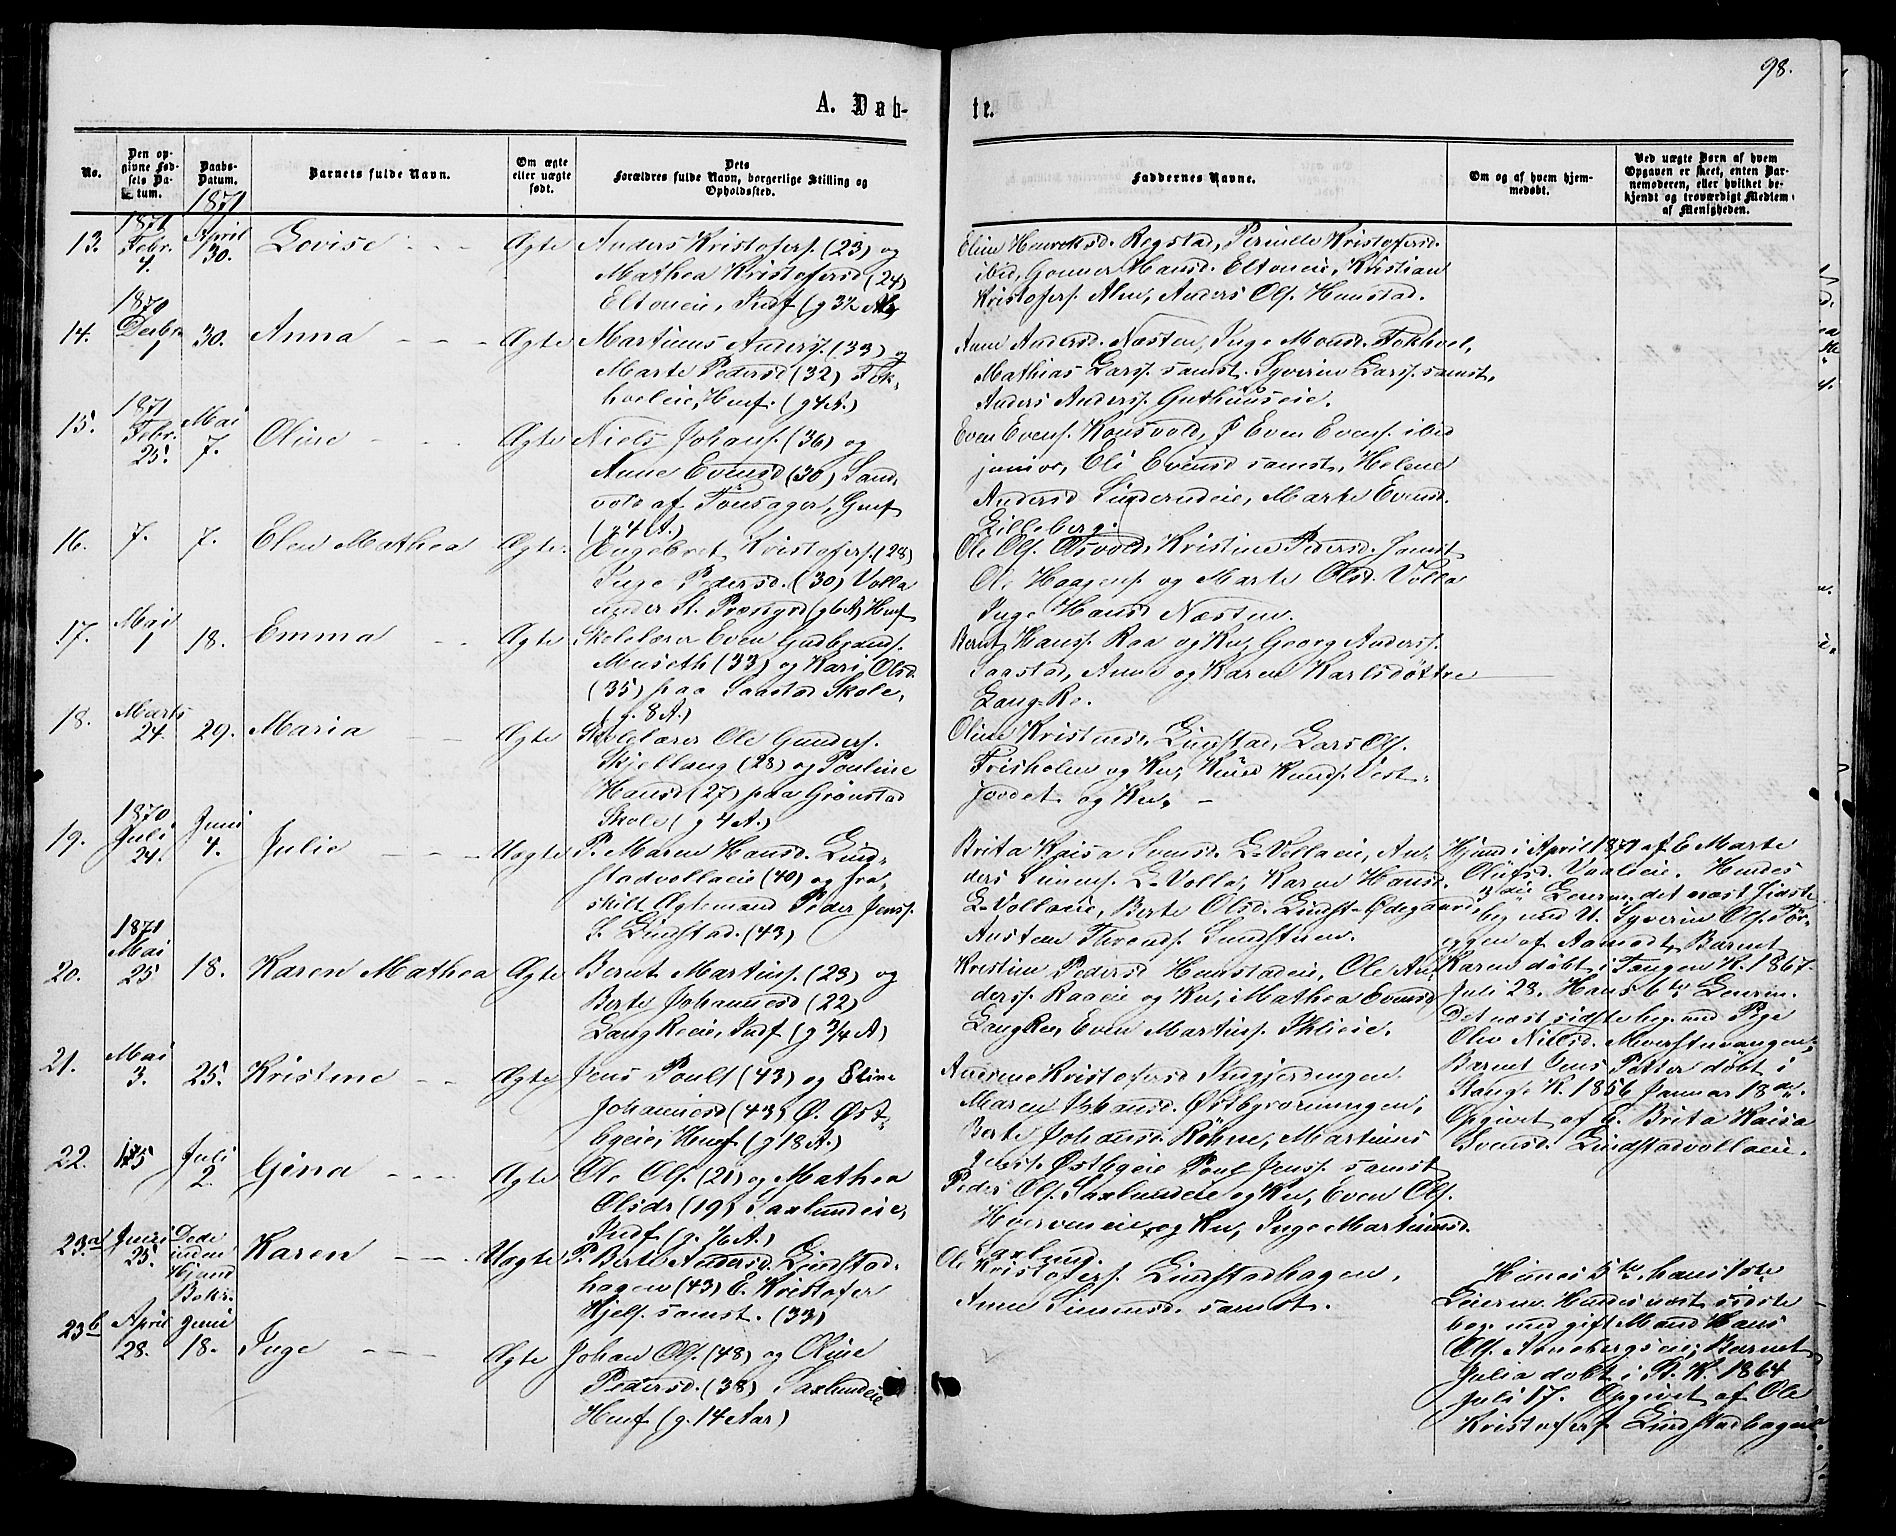 98.
A. Døb-
te.
No.
Den op-
givne Fød-
sels Da-
tum.
Daabs-
Datum.
Barnets fulde Navn.
Om ægte
eller uægte
født.
Dets
Forældres fulde Navn, borgerlige Stilling og
Opholdssted.
Faddernes Navne.
Om og af hvem hjem-
medøbt.
Ved uægte Børn af hvem
Opgaven er skeet, enten Bar-
nemoderen, eller hvilket be-
kjendt og troværdigt Medlem
af Menigheden.
13.
1871
Febr.
4.
1871
April
30.
Lovise
Ægte
Anders Kristofers. (23) og
Mathea Kristofersd (24)
Eltoneie, Indf
Eline Henriksd. Rogstad, Pernille Kristofersd.
ibid, Gunner Hansd. Eltoneie, Kristian
Kristofers. Alm, Anders Ols. Hunstad.
14.
1870
Decbr
1
30.
Anna
Ægte
Martinus Anders. (33) og
Marte Pedersd (32) Fok-
hveleie, Husf. (g 4 A.)
Anne Andersd. Næsten, Inge Monsd. Fokhvel,
Mathias Lars. samst. Syverin Lars. samst,
Anders Anders. Guthuuseie.
15.
1871
Febr.
25.
Mai
7.
Oline
Ægte
Niels Johans. (36) og
Anne Evensd (30) Sand-
vold af Tønsager, Husf
(g 4 A.)
Even Evens. Konsvold, Even Evens. ibid
junior, Eli Evensd samst, Helene
Andersd Sinderudeie, Marte Evensd.
Lilleberg.
16.
7.
7.
Elen Mathea
Ægte.
Ingebret Kristofers. (28)
Inge Pedersd. (30) Volla
under St. Præsgrd (g 6 A) Husf
Ole Ols. Øsvold, Kristine Pedersd. samst
Ole Haagens. og Marte Olsd. Volla
Inge Hansd Næsten.
17.
Mai
1
18.
Emma
Ægte
Skolelærer Even Gudbrands.
Museth (33) og Kari Olsd.
(35) paa Saastad Skole,
(g. 8 A.)
Bernt Hans. Raa og Ku, Georg Anders.
Saastad, Anne og Karen Karlsdøttre
Lang-Re.
18.
Marts
24.
29.
Maria
Ægte
Skolelærer Ole Gunders.
Skjellang (28) og Pouline
Hansd (27) paa Grønstad
Skole (g 4 A.)
Oline Kristiansd. Lindstad, Lars Ols.
Frisholm og Ku, Knud Knuds. Vest-
jordet og Ku.
19.
1870
Juli
24.
Juni
4.
Julie
Uægte
P. Maren Hansd. Lind-
stadvollaeie (40) og fra-
skilt Ægtemand Peder Jens.
S. Lindstad. (43)
Brita Kaisa Svensd. L-Vollaeie, An-
ders Simens. L-Volla, Karen Hansd.
L-Vollaeie, Berte Olsd. Lindst-Ødegaard
Austen Thronds. Sundstuen.
Hjmd i April 1871 af E Marte
Olufsd. Vaaleie. Hendes
4de Leierm, det næst sidste
beg. med U. Syverin Ols. Tør-
eggen af Aamodt, Barnet
Karen døbt i Tangen K. 1867
Juli 28. Hans 6te Leierm.
Det næst sidste beg. med Pige
Olev Nilsd. Mverstuvangen,
Barnet Jens Petter døbt i
Stange K. 1856 Januar 13de.
Opgivet af E. Brita Kaisa
Svensd. Lindstadvollaeie.
20.
1871
Mai
25
18.
Karen Mathea
Ægte
Bernt Martins. (23) og
Berte Johannesd (22)
Lang Reeie, Indf (g 3/4 A)
Kristine Pedersd Hunstadeie, Ole An-
ders. Raaeie og Ku, Mathea Evensd
Lang Re, Even Martins. Ihleeie.
21.
Mai
3.
25.
Kristine
Ægte
Jens Pouls (43) og Eline
Johannesd (43) Ø. Øst-
bgeie, Husf. (g 18 A.)
Andrine Kristofersd Indgjerdingen
Maren Hansd. Østbysveningen,
Berte Johansd. Røhne, Martinus
Jens. Østbgeie Poul Jens. samst
22.
15
Juli
2.
Gina
Ægte
Ole Ols. (21) og Mathea
Olsdr (19) Saxlundeie,
Indf (g. 1/6 A.)
Peder Ols. Saxlundeie og Ku, Even Ols.
Hverveneie og Ku, Inge Martinusd.
Saxlund.
23a
Juni
25.
Døde
inden
Hjmd
Bekr.
Karen
Uægte
P. Berte Andersd. Lindstad-
hagen (43) E. Kristofer
Kjels. samst. (33)
Ole Kristofers. Lindstadhagen,
Anne Simensd. samst.
Hunes 5te, hans 1ste
Leierm. Hendes næst sidste
beg. med gift Mand Hans
Ols. Arnebergseie, Barnet
Julia døbt i St. K. 1864
Juli 17. Opgivet af Ole
Kristofers Lindstadhagen
23b
April
28.
Juni
18.
Inge
Ægte
Johan Ols. (48) og Oline
Pedersd. (38) Saxlundeie
Husf (g. 14 Aar)